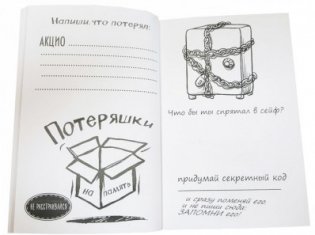 Напиши, что потерял:
АКЦИО
Потеряшки
НА ПАМЯТЬ
НЕ РАССТРАИВАЙСЯ
Что бы ты спрятал в сейф?
придумай секретный код
и сразу поменяй его
и не пиши сюда:
ЗАПОМНИ его!